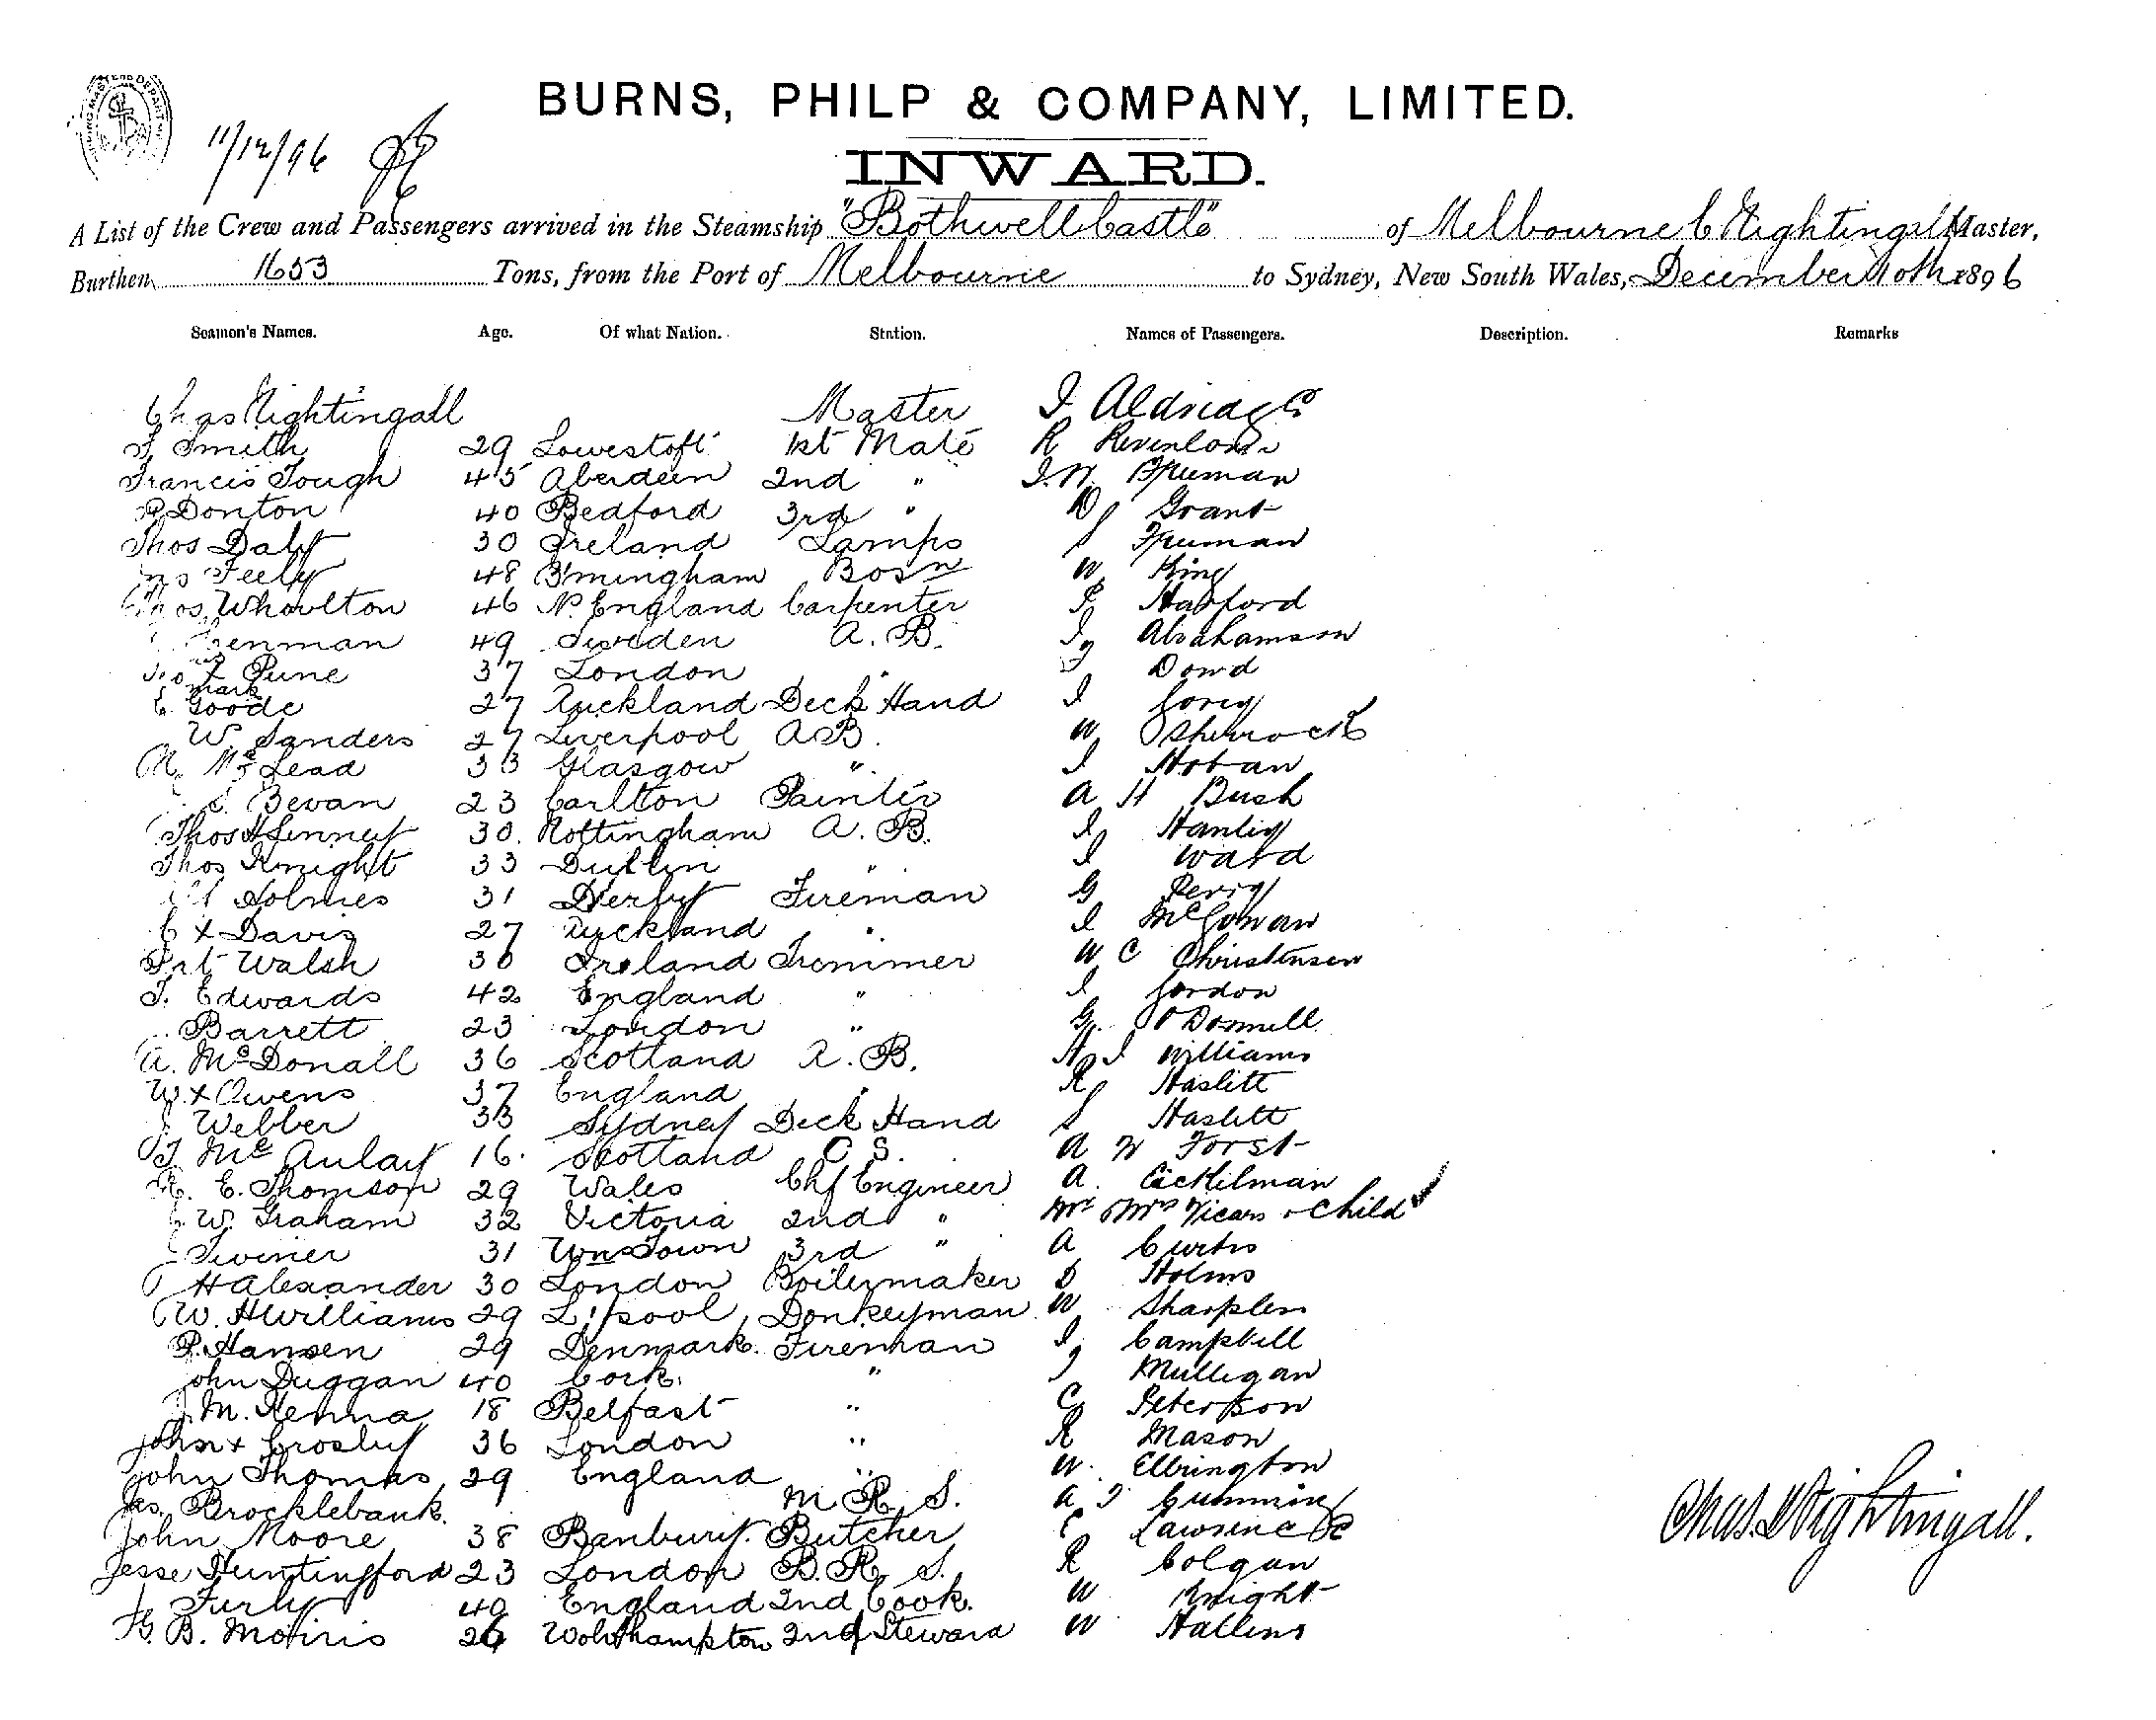 BURNS, PHILP & COMPANY, LIMITED.
11/12/96
INWARD.
A List of the Crew and Passengers arrived in the Steamship "Bothwell Castle" of Melbourne C Nightingall Master,
Burthen 1653 Tons, from the Port of Melbourne to Sydney, New South Wales, December 10th 1896
Seamen's Names. Age. Of what Nation. Station. Names of Passengers. Description. Remarks
Chas Nightingall Master J Aldridge
F Smith 29 Lowestoft 1st Mate R
Francis Tough 45 Aberdeen 2nd " J.W. Freeman
P Donton 40 Bedford 3rd " D Grant
Thos Daly 30 Ireland Lamps S Freeman
Feely 48 B'mingham Bosn W King
Thos Whoulton 46 N. England Carpenter P Harford
49 Sweden A.B. J Abrahamson
37 London " J Dowd
mark
C. Goode 27 Auckland Deck Hand J Corey
W Sanders 27 Liverpool AB. W Sherrock
McLead 33 Glasgow " J Hoban
Bevan 23 Carlton Painter A H Bush
Thos H Linney 30. Nottingham A.B. J Hanley
Thos Knight 33 Dublin " J Ward
Holmes 31 Derby Fireman G Perry
C x Davis 27 Auckland " J McGowan
Pat Walsh 30 Ireland Trimmer W C Christensen
T. Edwards 42 England " J Gordon
Barrett 23 London " G. O Donnell
A. McDonall 36 Scotland A.B. H J Williams
W. x Owens 37 England " R Haslett
J. Webber 33 Sydney Deck Hand S Haslett
J McAulay 16. Scotland O S. A W Forst
R. E. Thomson 29 Wales Chf Engineer A.
W. Graham 32 Victoria 2nd " Mr & Mrs Vicars & Child
Twiner 31 Wms Town 3rd " A Curtis
H Alexander 30 London Boilermaker D Holms
W. H Williams 29 L'pool Donkeyman W Sharples
P. Hansen 29 Denmark. Fireman J Campbell
John Duggan 40 Cork. " J Mulligan
J. M. Kenna 18 Belfast " C Peterson
John x Crosby 36 London " R Mason
John Thomas 29 England " W. Ellrington
Jas. Brocklebank. M R. S. A J Cumming
John Moore 38 Banbury. Butcher C Lawrence
Jesse Huntingford 23 London B. R. S. R Colgan
Chas. Nightingall.
Furly 40 England 2nd Cook. W Knight
G. B. Morris 26 Wolv'hampton 2nd Steward W Hallins